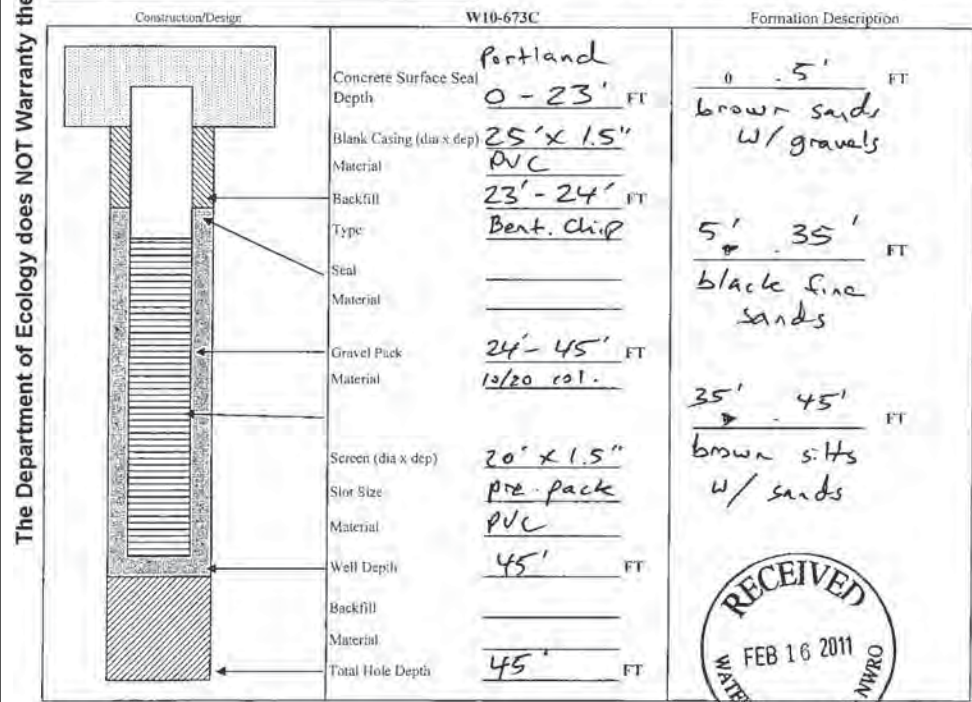 The Department of Ecology does NOT Warranty the
Construction/Design
W10-673C
Formation Description
Portland
Concrete Surface Seal
Depth
0 - 23' FT
Blank Casing (dia x dep) 25' x 1.5"
Material PVC
Backfill 23' - 24' FT
Type Bent. Chip
Seal
Material
Gravel Pack 24' - 45' FT
Material 10/20 col.
Screen (dia x dep) 20' x 1.5"
Slot Size pre-pack
Material PVC
Well Depth 45' FT
Backfill
Material
Total Hole Depth 45' FT
0 - 5' FT
brown sands
w/ gravels
5' - 35' FT
black fine
sands
35' - 45' FT
brown silts
w/ sands
RECEIVED
FEB 16 2011
NWRO